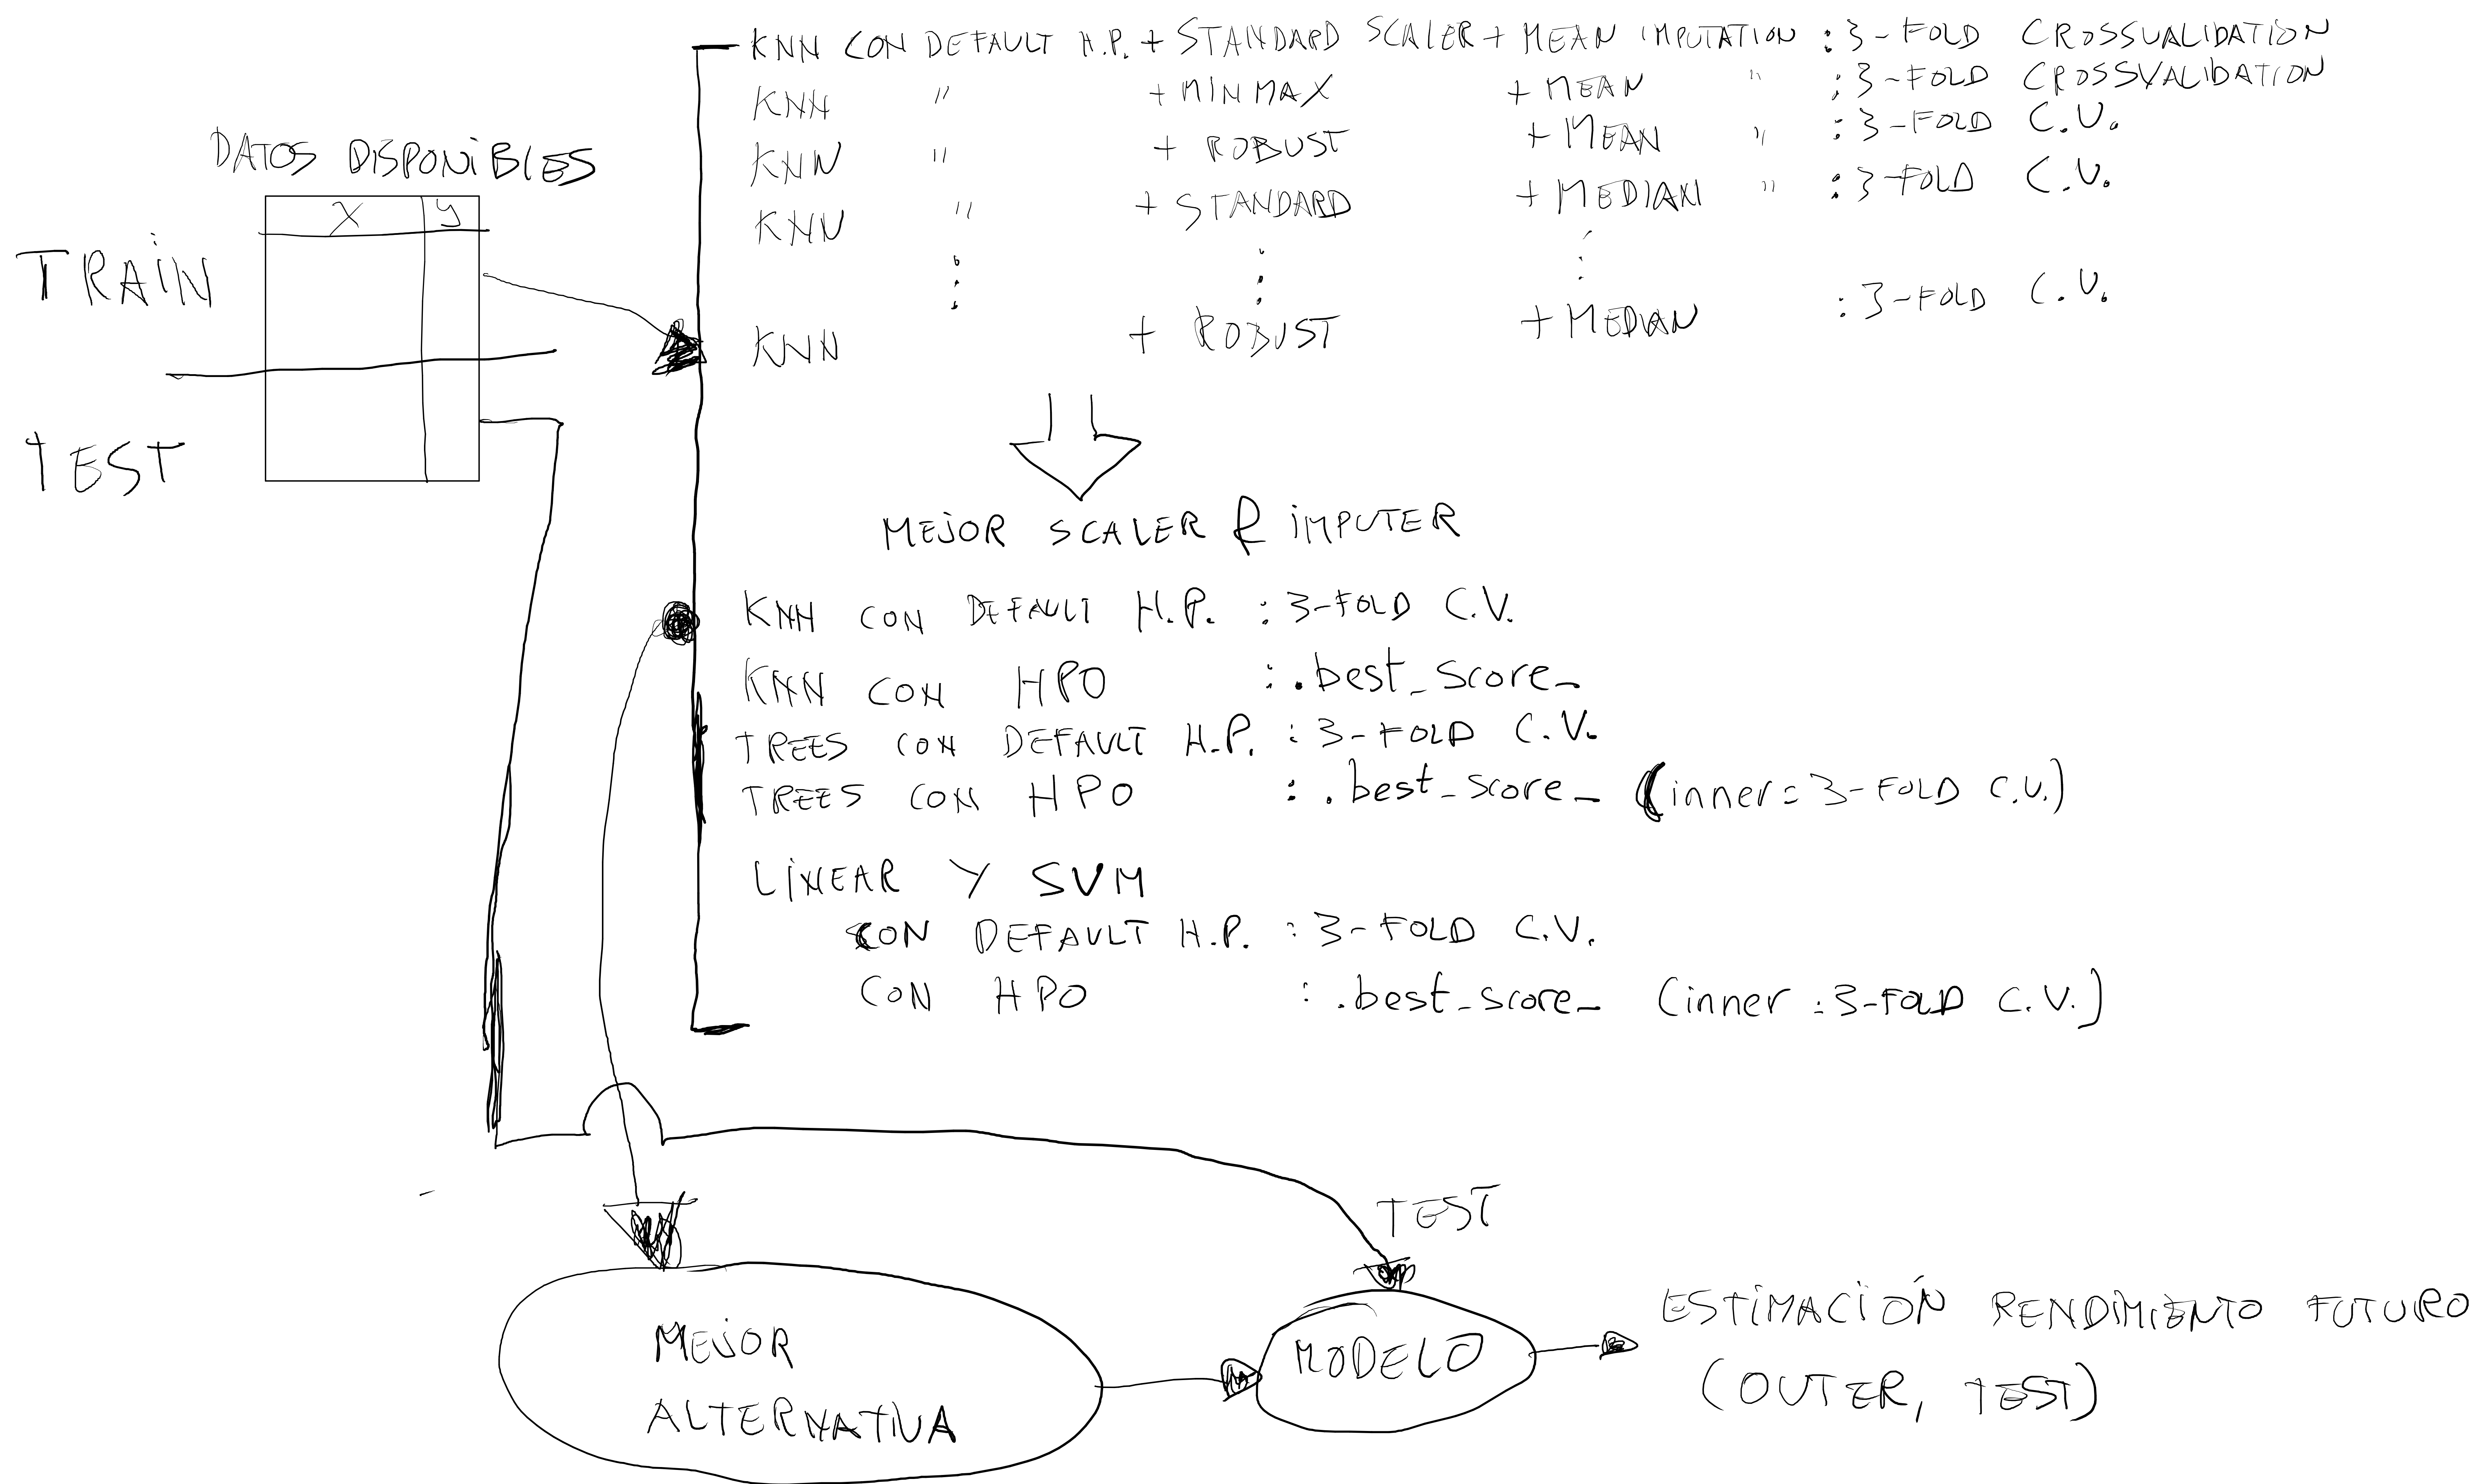 DATOS DISPONIBLES
X y
TRAIN
TEST
KNN CON DEFAULT H.P. + STANDARD SCALER + MEAN IMPUTATION : 3-FOLD CROSSVALIDATION
KNN " + MINMAX + MEAN " : 3-FOLD CROSSVALIDATION
KNN " + ROBUST + MEAN " : 3-FOLD C.V.
KNN " + STANDARD + MEDIAN " : 3-FOLD C.V.
KNN + ROBUST + MEDIAN : 3-FOLD C.V.
MEJOR SCALER & IMPUTER
KNN CON DEFAULT H.P. : 3-FOLD C.V.
KNN CON HPO : .best_score_
TREES CON DEFAULT H.P. : 3-FOLD C.V.
TREES CON HPO : .best_score_ (inner = 3-FOLD C.V.)
LINEAR Y SVM
CON DEFAULT H.P. : 3-FOLD C.V.
CON HPO : .best_score_ (inner : 3-FOLD C.V.)
TEST
MEJOR
ALTERNATIVA
MODELO
ESTIMACIÓN RENDIMIENTO FUTURO
(OUTER, TEST)